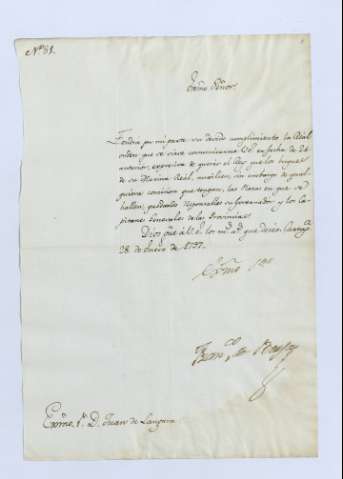 Nº 81.
Exmo Señor.
Tendrá por mi parte su devido cumplimiento, la Real
orden que se sirve comunicarme V.E. en fecha de 24
anterior, expresiva de querer el Rey que los buques
de su Marina Real, auxilien, sin embargo de qual-
quiera comision que tengan, las Plazas en que se
hallen, pidiendolo sus Governador y los Ca-
pitanes Generales de las Provincias.
Dios gue à V.E. los ms. as. que deseo. Cartagª
28 de Enero de 1797.
Exmo Sor
Franco de Borja
Exmo. Sr. D. Juan de Langara